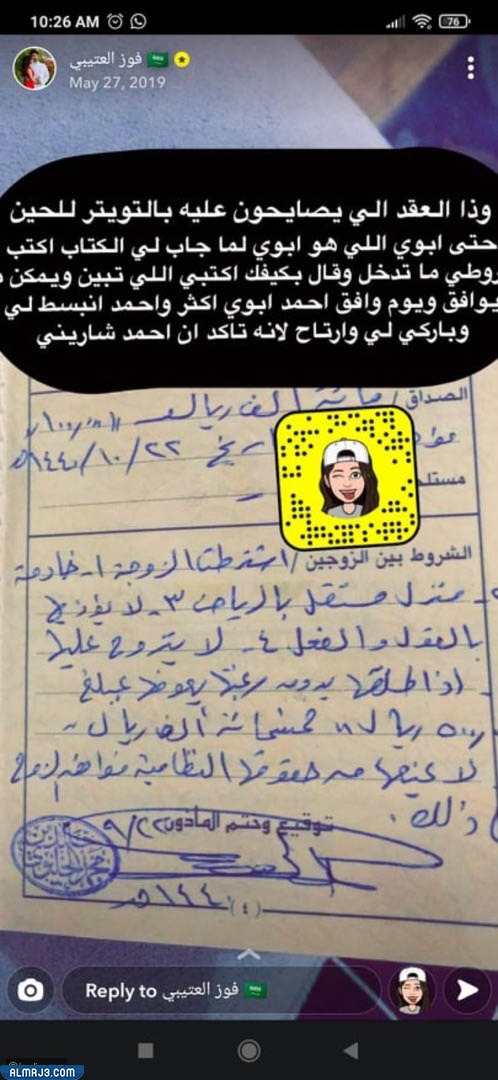 10:26 AM
76
فوز العتيبي
May 27, 2019
وذا العقد الي يصايحون عليه بالتويتر للحين
حتى ابوي اللي هو ابوي لما جاب لي الكتاب اكتب
روطي ما تدخل وقال بكيفك اكتبي اللي تبين ويمكن
يوافق ويوم وافق احمد ابوي اكثر واحمد انبسط لي
وباركي لي وارتاح لانه تاكد ان احمد شاريني
الصداق / مائة ألف ريال
١٤٤٠/١٠/٢٢
الشروط بين الزوجين / اشترطت الزوجة ١- خادمة
منزل مستقل بالرياض ٣- لا يؤذيها
بالقول والفعل ٤- لا يتزوج عليها
إذا طلقها بدون رغبتها يعوضها بمبلغ
ريال خمسمائة ألف ريال
لا يمنعها من حقوقها النظامية
ذلك.
توقيع وختم المأذون
١٤٤٠هـ
(٤)
Reply to فوز العتيبي
ALMRJ3.COM